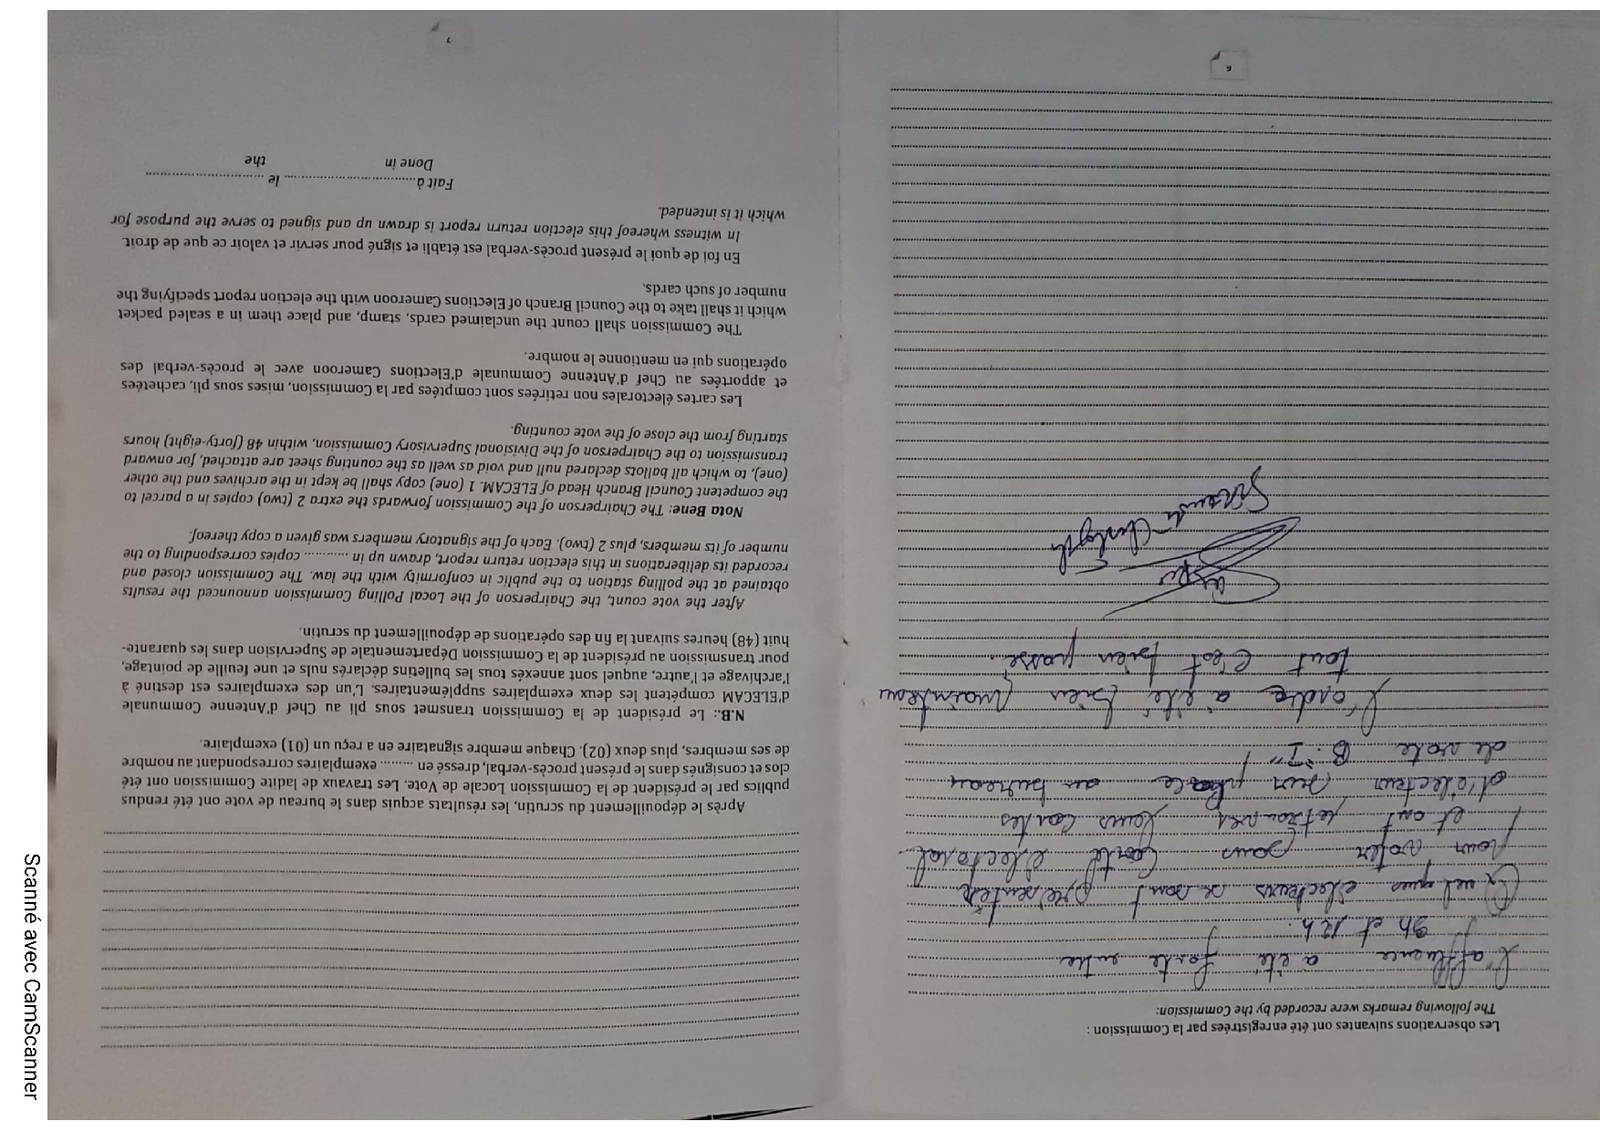 Les observations suivantes ont été enregistrées par la Commission :
The following remarks were recorded by the Commission:
L'affluence a été forte entre
9h et 12h.
Quelques électeurs se sont présentés
pour voter sans carte électoral
et ont retrouvés leurs cartes
d'électeur sur place au bureau
de vote B. "I"
L'ordre a été bien maintenu
tout c'est bien passé.
6
Après le dépouillement du scrutin, les résultats acquis dans le bureau de vote ont été rendus
publics par le président de la Commission Locale de Vote. Les travaux de ladite Commission ont été
clos et consignés dans le présent procès-verbal, dressé en ......... exemplaires correspondant au nombre
de ses membres, plus deux (02). Chaque membre signataire en a reçu un (01) exemplaire.
N.B.: Le président de la Commission transmet sous pli au Chef d'Antenne Communale
d'ELECAM compétent les deux exemplaires supplémentaires. L'un des exemplaires est destiné à
l'archivage et l'autre, auquel sont annexés tous les bulletins déclarés nuls et une feuille de pointage,
pour transmission au président de la Commission Départementale de Supervision dans les quarante-
huit (48) heures suivant la fin des opérations de dépouillement du scrutin.
After the vote count, the Chairperson of the Local Polling Commission announced the results
obtained at the polling station to the public in conformity with the law. The Commission closed and
recorded its deliberations in this election return report, drawn up in ........... copies corresponding to the
number of its members, plus 2 (two). Each of the signatory members was given a copy thereof.
Nota Bene: The Chairperson of the Commission forwards the extra 2 (two) copies in a parcel to
the competent Council Branch Head of ELECAM. 1 (one) copy shall be kept in the archives and the other
(one), to which all ballots declared null and void as well as the counting sheet are attached, for onward
transmission to the Chairperson of the Divisional Supervisory Commission, within 48 (forty-eight) hours
starting from the close of the vote counting.
Les cartes électorales non retirées sont comptées par la Commission, mises sous pli, cachetées
et apportées au Chef d'Antenne Communale d'Elections Cameroon avec le procès-verbal des
opérations qui en mentionne le nombre.
The Commission shall count the unclaimed cards, stamp, and place them in a sealed packet
which it shall take to the Council Branch of Elections Cameroon with the election report specifying the
number of such cards.
En foi de quoi le présent procès-verbal est établi et signé pour servir et valoir ce que de droit.
In witness whereof this election return report is drawn up and signed to serve the purpose for
which it is intended.
Fait à.................................. le ..............................
Done in the
7
Scanné avec CamScanner